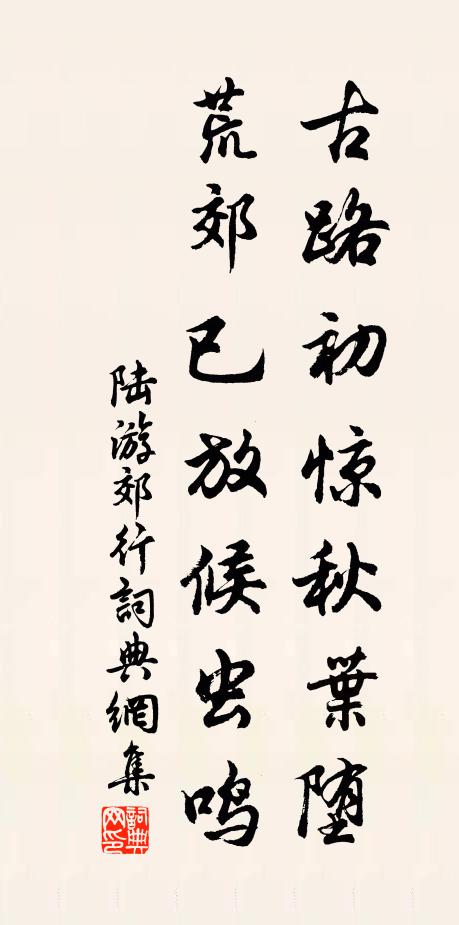 古路初惊秋葉堕
荒郊已放候虫鸣
陆游郊行詞典網集
詞典网印